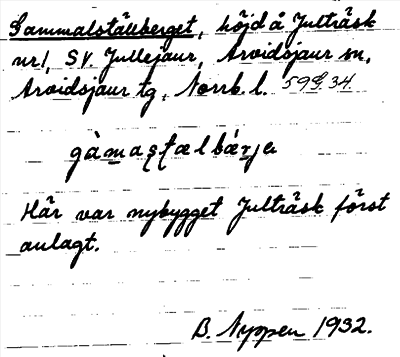 Gammalställberget, höjd å Julträsk
nr1, SV. Jullejaur, Arvidsjaur sn,
Arvidsjaur tg, Norrb. l. 59 G. 34.
gàmaʂʈælbærjə
Här var nybygget Julträsk först
anlagt.
B. Nyppen 1932.